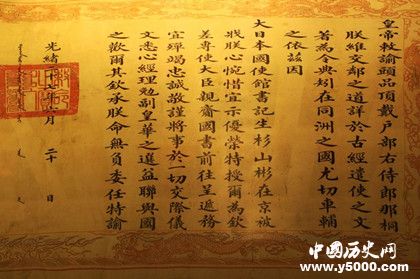 皇帝敕諭頭品頂戴戶部右侍郎那桐
朕維交鄰之道詳於古經遣使之文
著為令典矧在同洲之國尤切車輔
之依茲因
大日本國使館書記生杉山彬在京被
戕朕心惋惜宣示優榮特授爾為欽
差專使大臣親齎國書前往呈遞務
宜殫竭忠誠敬謹將事於一切交際儀
文悉心經理勉副皇華之選益聯與國
之歡爾其欽承朕命無負委任特諭
光緒二十七年月二十日
中国历史网
www.y5000.com